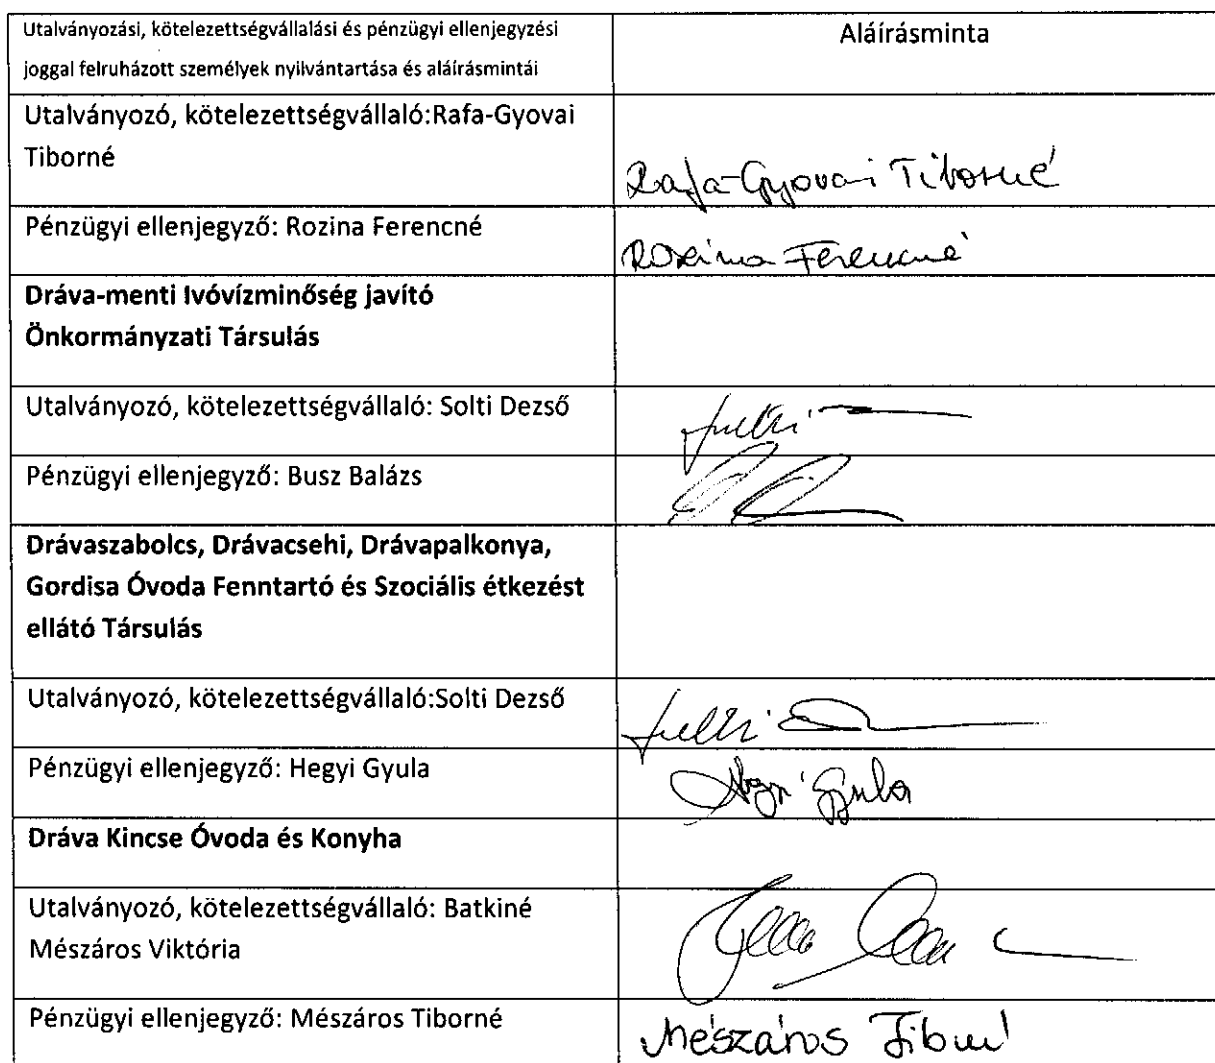 Utalványozási, kötelezettségvállalási és pénzügyi ellenjegyzési
joggal felruházott személyek nyilvántartása és aláírásmintái
Aláírásminta
Utalványozó, kötelezettségvállaló:Rafa-Gyovai
Tiborné
Rafa-Gyovai Tiborné
Pénzügyi ellenjegyző: Rozina Ferencné
Rozina Ferencné
Dráva-menti Ivóvízminőség javító
Önkormányzati Társulás
Utalványozó, kötelezettségvállaló: Solti Dezső
Pénzügyi ellenjegyző: Busz Balázs
Drávaszabolcs, Drávacsehi, Drávapalkonya,
Gordisa Óvoda Fenntartó és Szociális étkezést
ellátó Társulás
Utalványozó, kötelezettségvállaló:Solti Dezső
Pénzügyi ellenjegyző: Hegyi Gyula
Hegyi Gyula
Dráva Kincse Óvoda és Konyha
Utalványozó, kötelezettségvállaló: Batkiné
Mészáros Viktória
Pénzügyi ellenjegyző: Mészáros Tiborné
Mészáros Tiborné